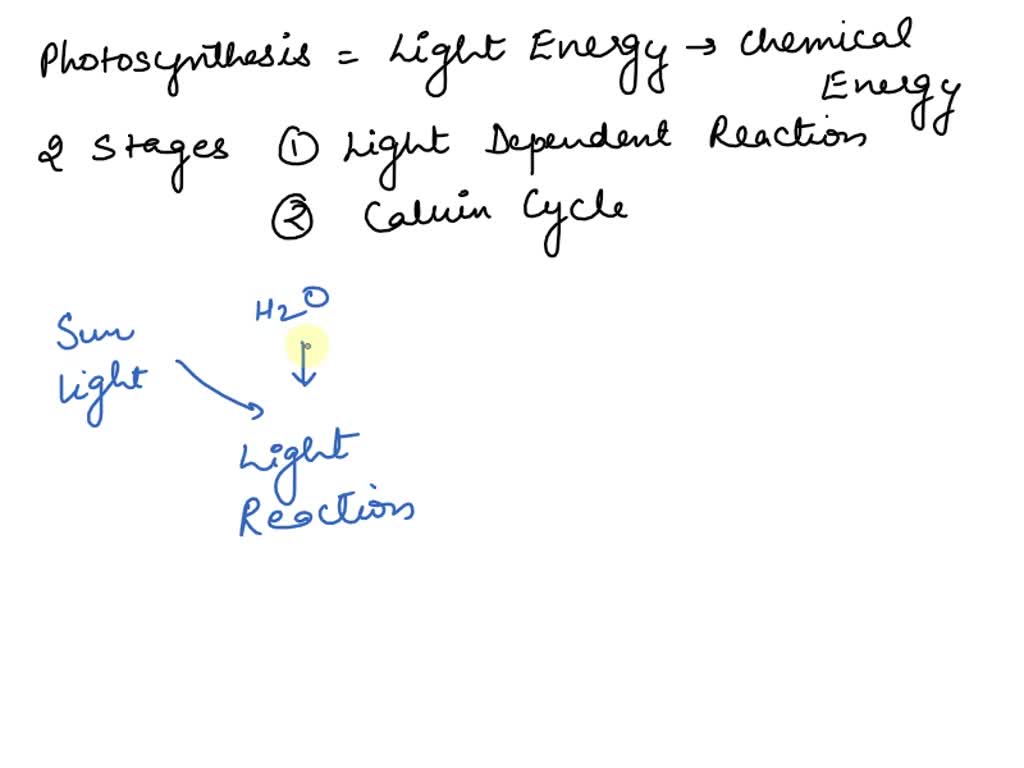 Photosynthesis = Light Energy → Chemical
Energy
2 Stages ① Light Dependent Reaction
② Calvin Cycle
H2O
Sun
Light
Light
Reaction